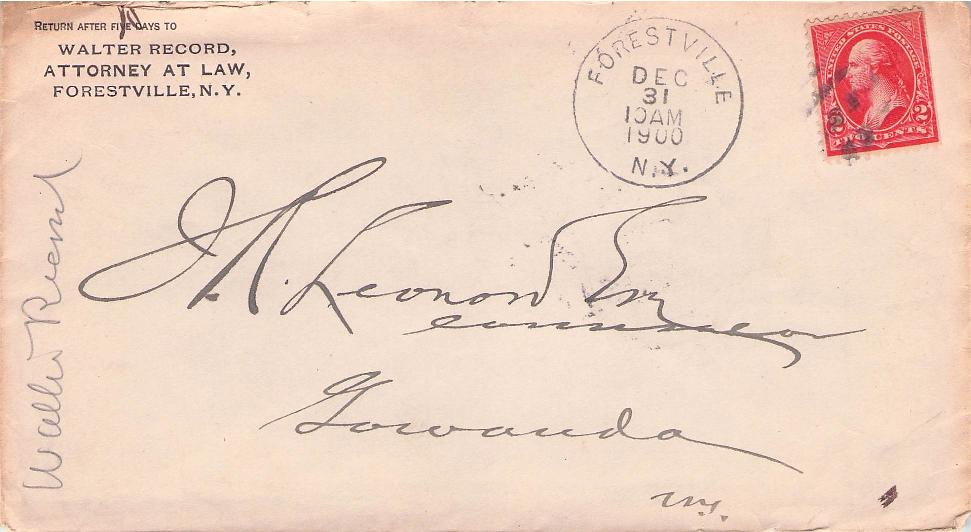 RETURN AFTER FIVE DAYS TO
WALTER RECORD,
ATTORNEY AT LAW,
FORESTVILLE, N.Y.
FORESTVILLE
DEC
31
10AM
1900
N.Y.
UNITED STATES POSTAGE
2 2
TWO CENTS
Walter Record
J. R. Leonard
Gowanda
N.Y.